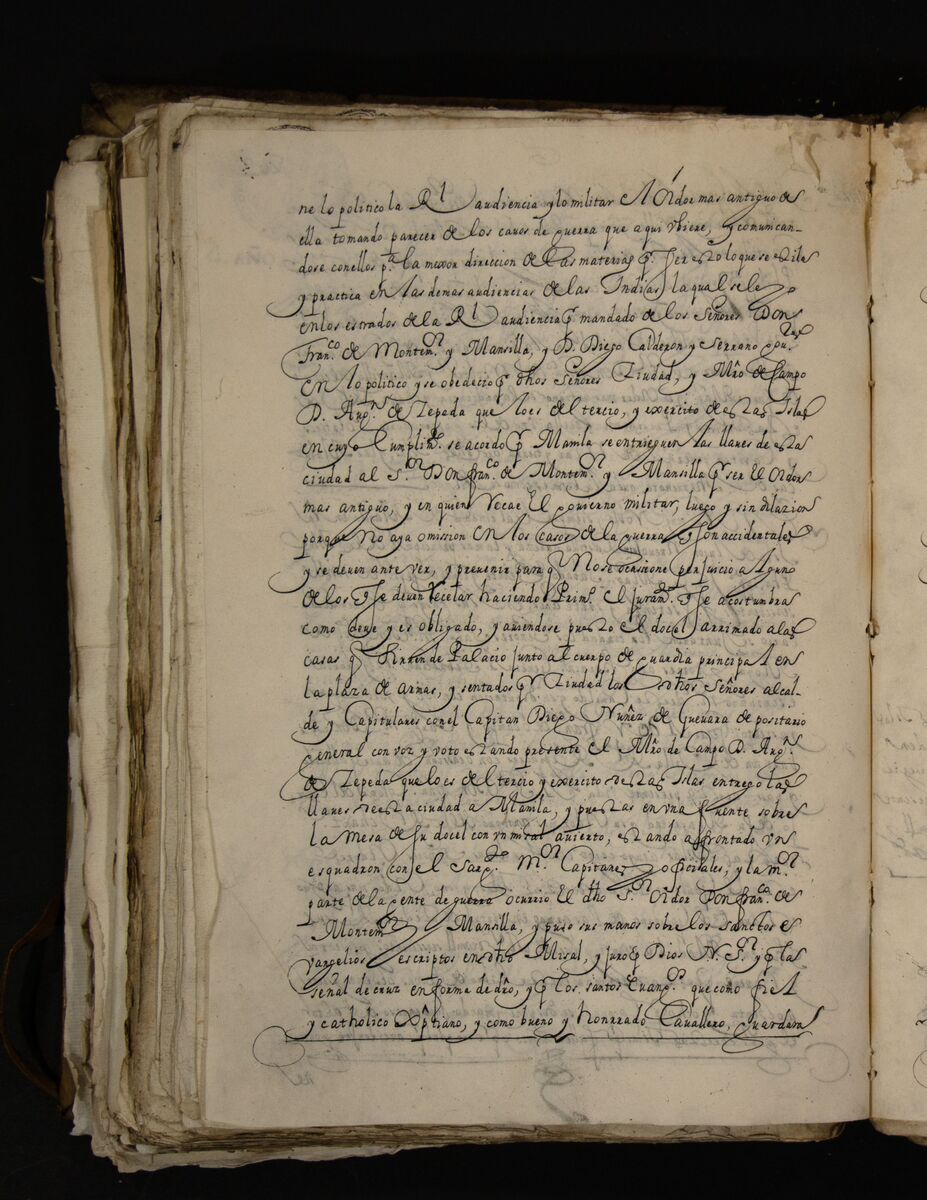 ne lo politico la Rl audiencia y lo militar el oidor mas antiguo de
ella tomando parecer de los cavos de guerra que aqui ubiere, y comunican-
dose con ellos pa. la mexor direccion de las materias q. ser esto lo que se estila
y practica en las demas audiencias de las Indias, la qual se leyo
en los estrados de la Rl audiencia q mandado de los Señores Don
Franco. de Montemor. y Mansilla, y D. Diego Calderon y Serrano
en lo politico y se obedecio q dhos Señores Ciudad, y Mro de Campo
D. Augn. de Zepeda que lo es del tercio, y exercito de estas Islas
en cuyo cumplimto. se acordo q Manila se entreguen las llaves de esta
ciudad al Sor. Don franco. de Montemor. y Mansilla q ser el oidor
mas antiguo, y en quien recae el govierno militar, luego y sin dilazion
porque no aya omission en los casos de la guerra q son accidentales
y se deven ante ver, y prevenir para q no se ocassione perjuicio alguno
de los q se deven recelar haciendo Prim. el juramto. q se acostumbra
como deve y es obligado, y aviendose puesto el docel arrimado a las
casas q sirven de Palacio junto al cuerpo de guardia principal en
la plaza de armas, y sentados q Ciudad los dhos Señores alcal-
de y Capitulares con el Capitan Diego Nuñez de Guevara de positario
general con voz y voto estando presente el Mro de Campo D. Augn.
de Zepeda que lo es del tercio y exercito de estas Islas entrego las
llaves de esta ciudad a Manila, y puestas en una fuente sobre
la mesa de su docel con un misal avierto, estando affrontado un
esquadron con el Sargto. Mor. Capitanes y oficiales, y la mor.
parte de la gente de guerra ocurrio el dho Sor. oidor Don franco. de
Montemor. y Mansilla, y puso sus manos sobre los sanctos e
vangelios escriptos en dho Misal, y juro q Dios N. Sor. y q la
señal de cruz en forma de dro, y q los santos Evangos. que como fiel
y catholico xptiano, y como bueno y honrrado Cavallero, guardara